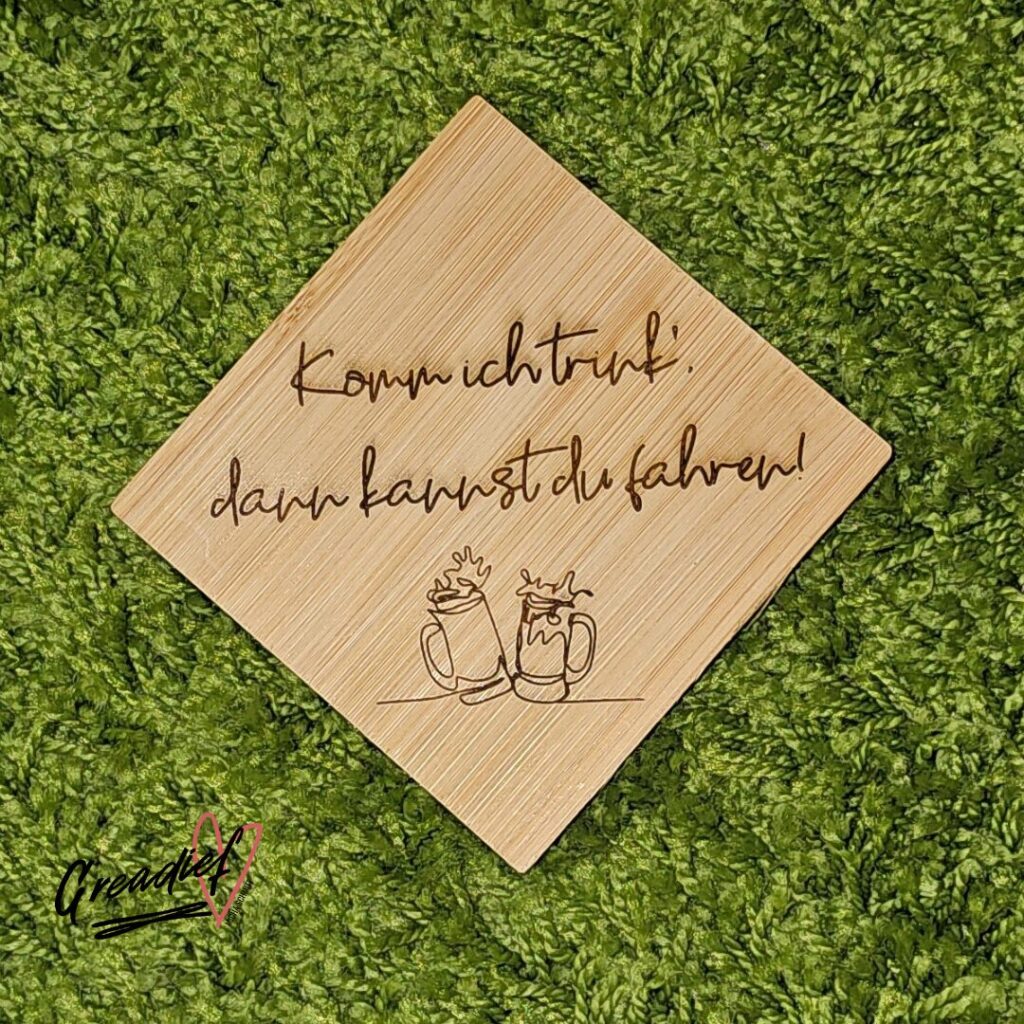 Komm ich trink',
dann kannst du fahren!
Greadief